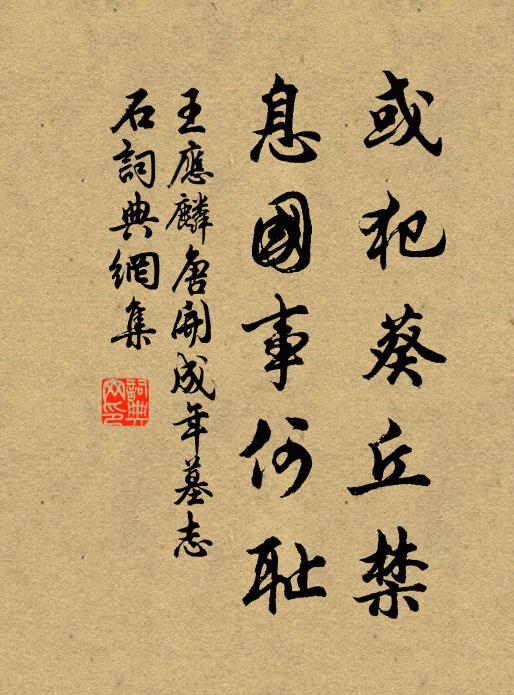 或犯葵丘禁
息國事何耻
王應麟唐開成年墓志
石詞典網集
詞典網印